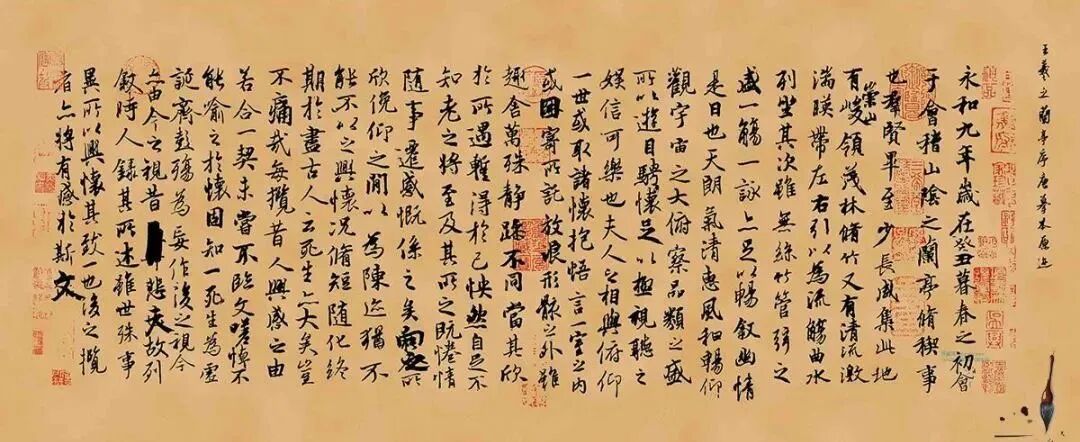 王羲之蘭亭序唐摹本原迹
永和九年歲在癸丑暮春之初會
于會稽山陰之蘭亭脩稧事
也羣賢畢至少長咸集此地
有崇山峻領茂林脩竹又有清流激
湍暎帶左右引以為流觴曲水
列坐其次雖無絲竹管弦之
盛一觴一詠亦足以暢叙幽情
是日也天朗氣清惠風和暢仰
觀宇宙之大俯察品類之盛
所以遊目騁懷足以極視聽之
娛信可樂也夫人之相與俯仰
一世或取諸懷抱悟言一室之內
或因寄所託放浪形骸之外雖
趣舍萬殊静躁不同當其欣
於所遇暫得於己怏然自足不
知老之將至及其所之既惓情
隨事遷感慨係之矣向之所
欣俛仰之閒以為陳迹猶不
能不以之興懷況脩短隨化終
期於盡古人云死生亦大矣豈
不痛哉每攬昔人興感之由
若合一契未嘗不臨文嗟悼不
能喻之於懷固知一死生為虛
誕齊彭殤為妄作後之視今
亦由今之視昔悲夫故列
敘時人錄其所述雖世殊事
異所以興懷其致一也後之攬
者亦將有感於斯文